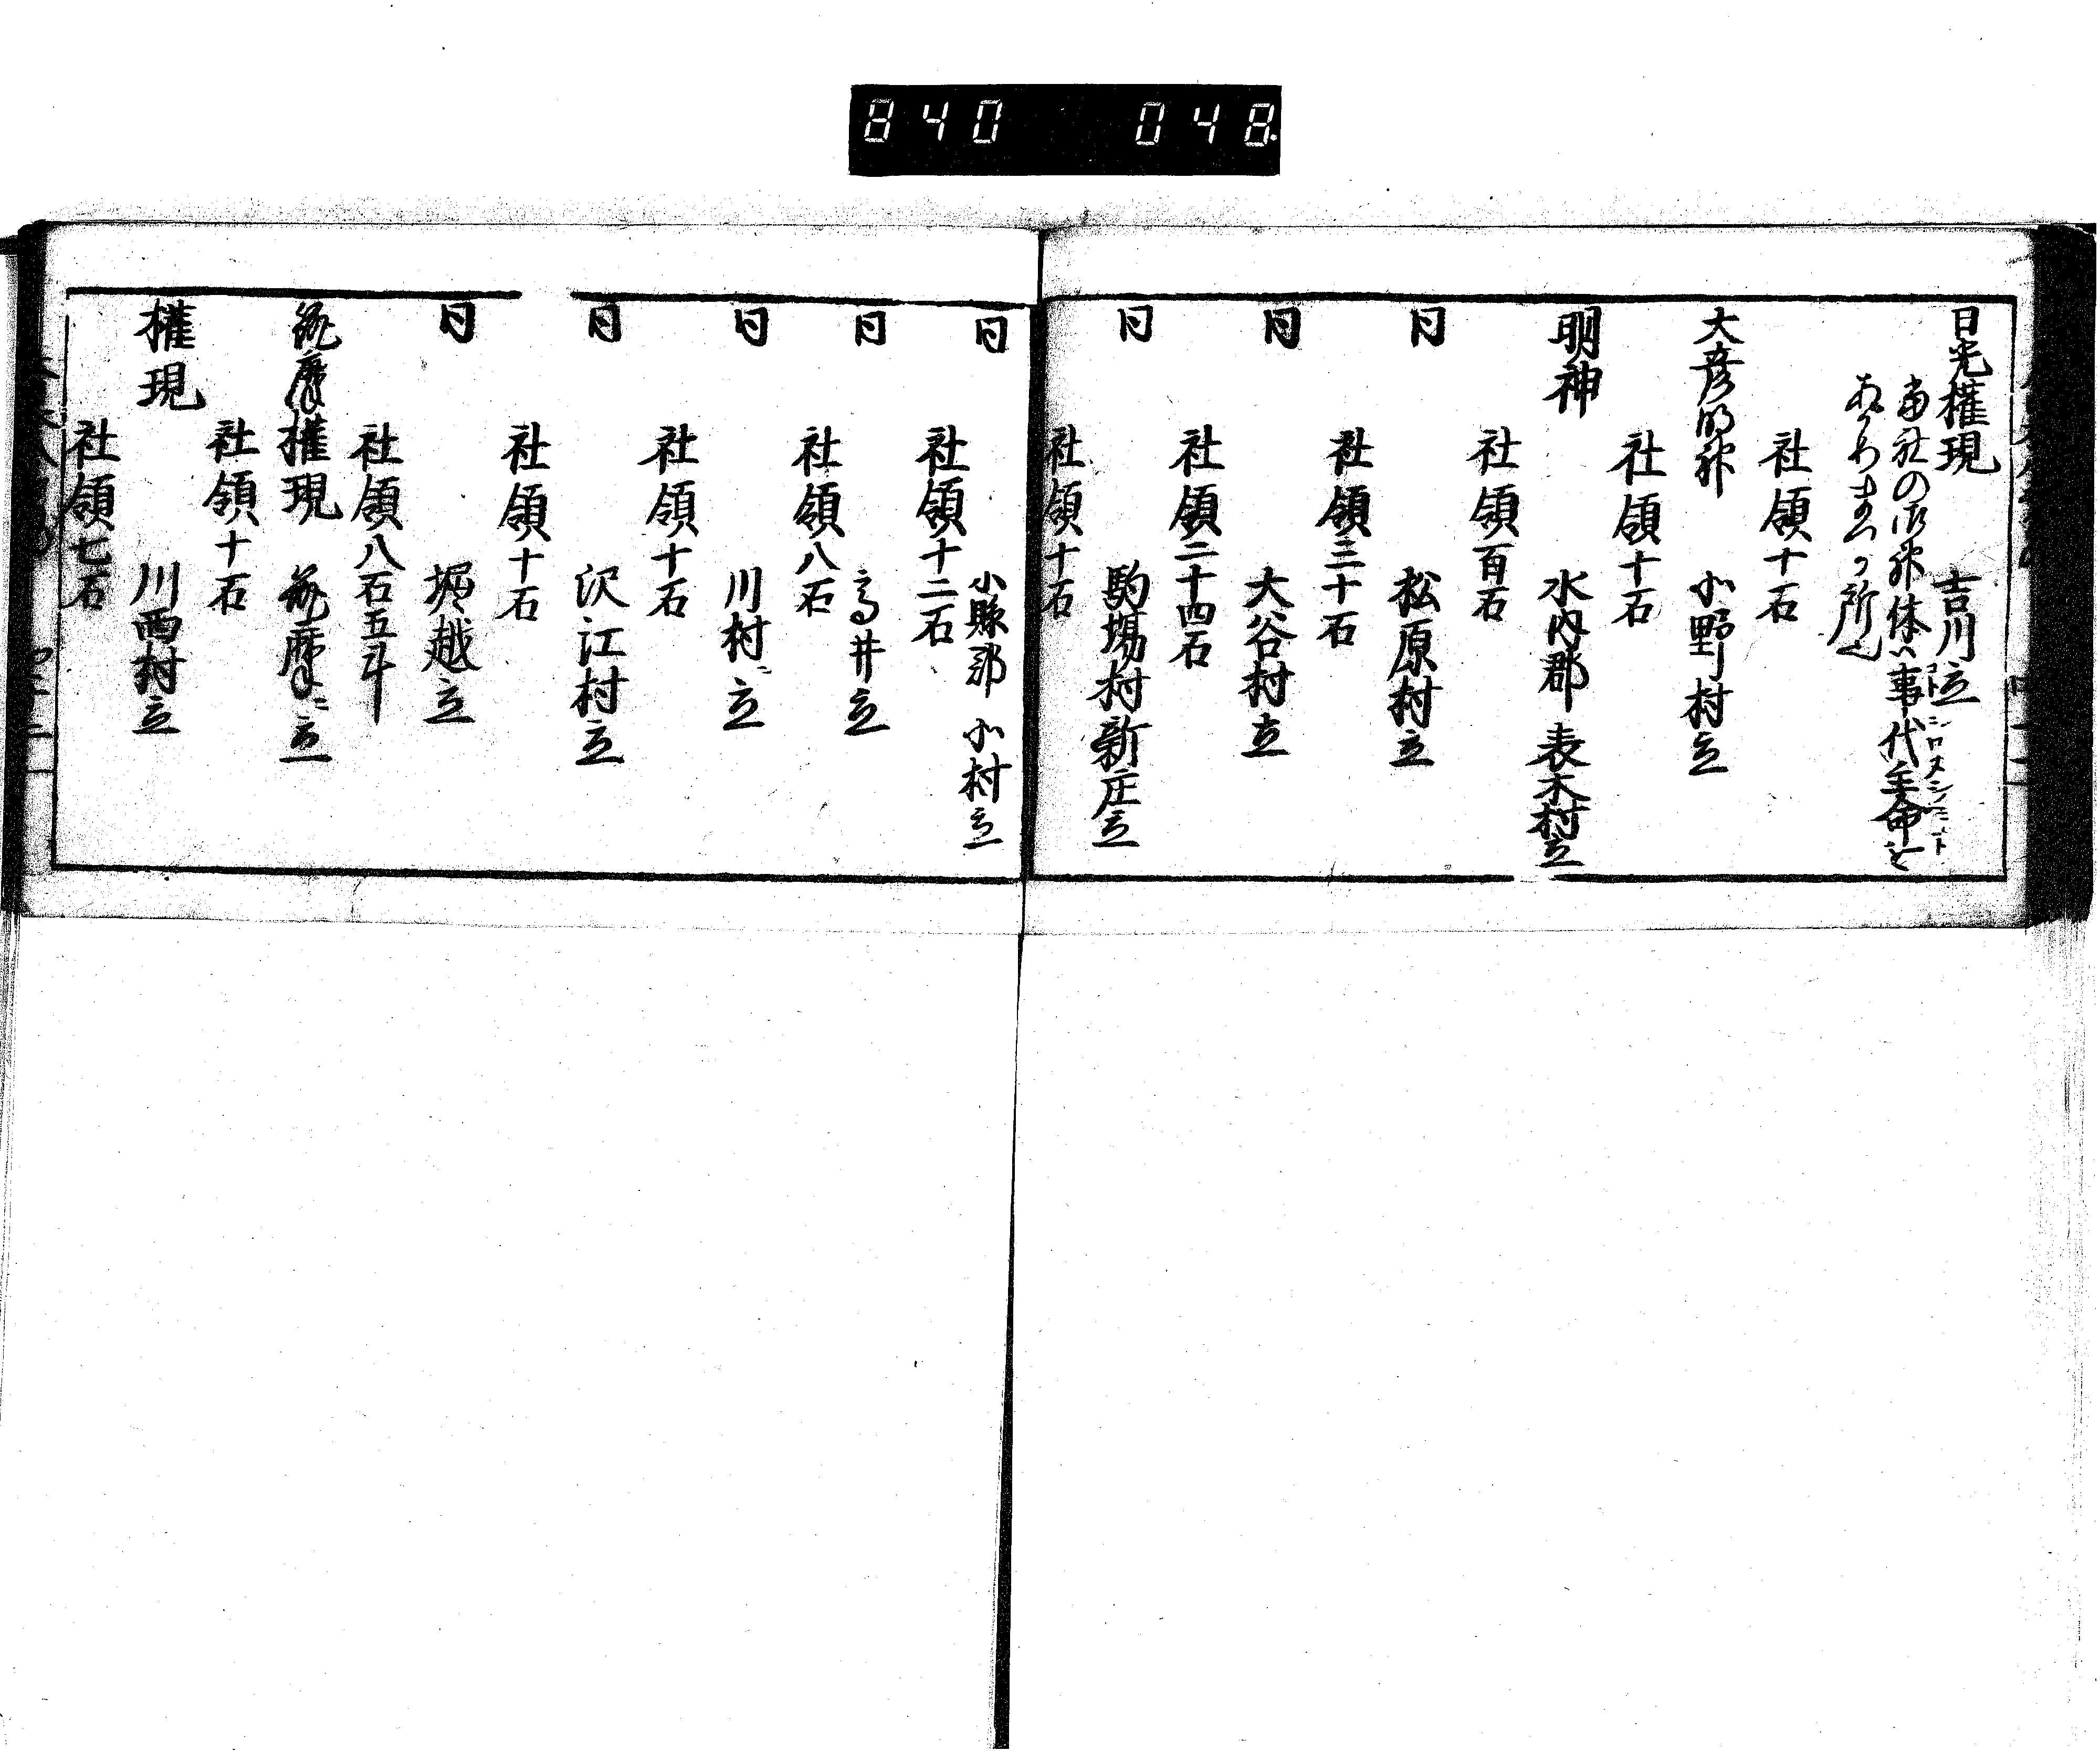 840 048
日光權現 吉川立
當社の御神体ハ事代主命を
コト シロヌシノミコト
あがめまつる所也
社領十石
大彦明神 小野村立
社領十石
明神 水内郡 表木村立
社領百石
同 松原村立
社領三十石
同 大谷村立
社領二十四石
同 駒場村新庄立
社領十石
同 小縣郡 小村立
社領十二石
同 高井立
社領八石
同 川村ニ立
社領十石
同 沢江村立
社領十石
同 堀越立
社領八石五斗
筑摩權現 筑摩ニ立
社領十石
權現 川西村立
社領七石